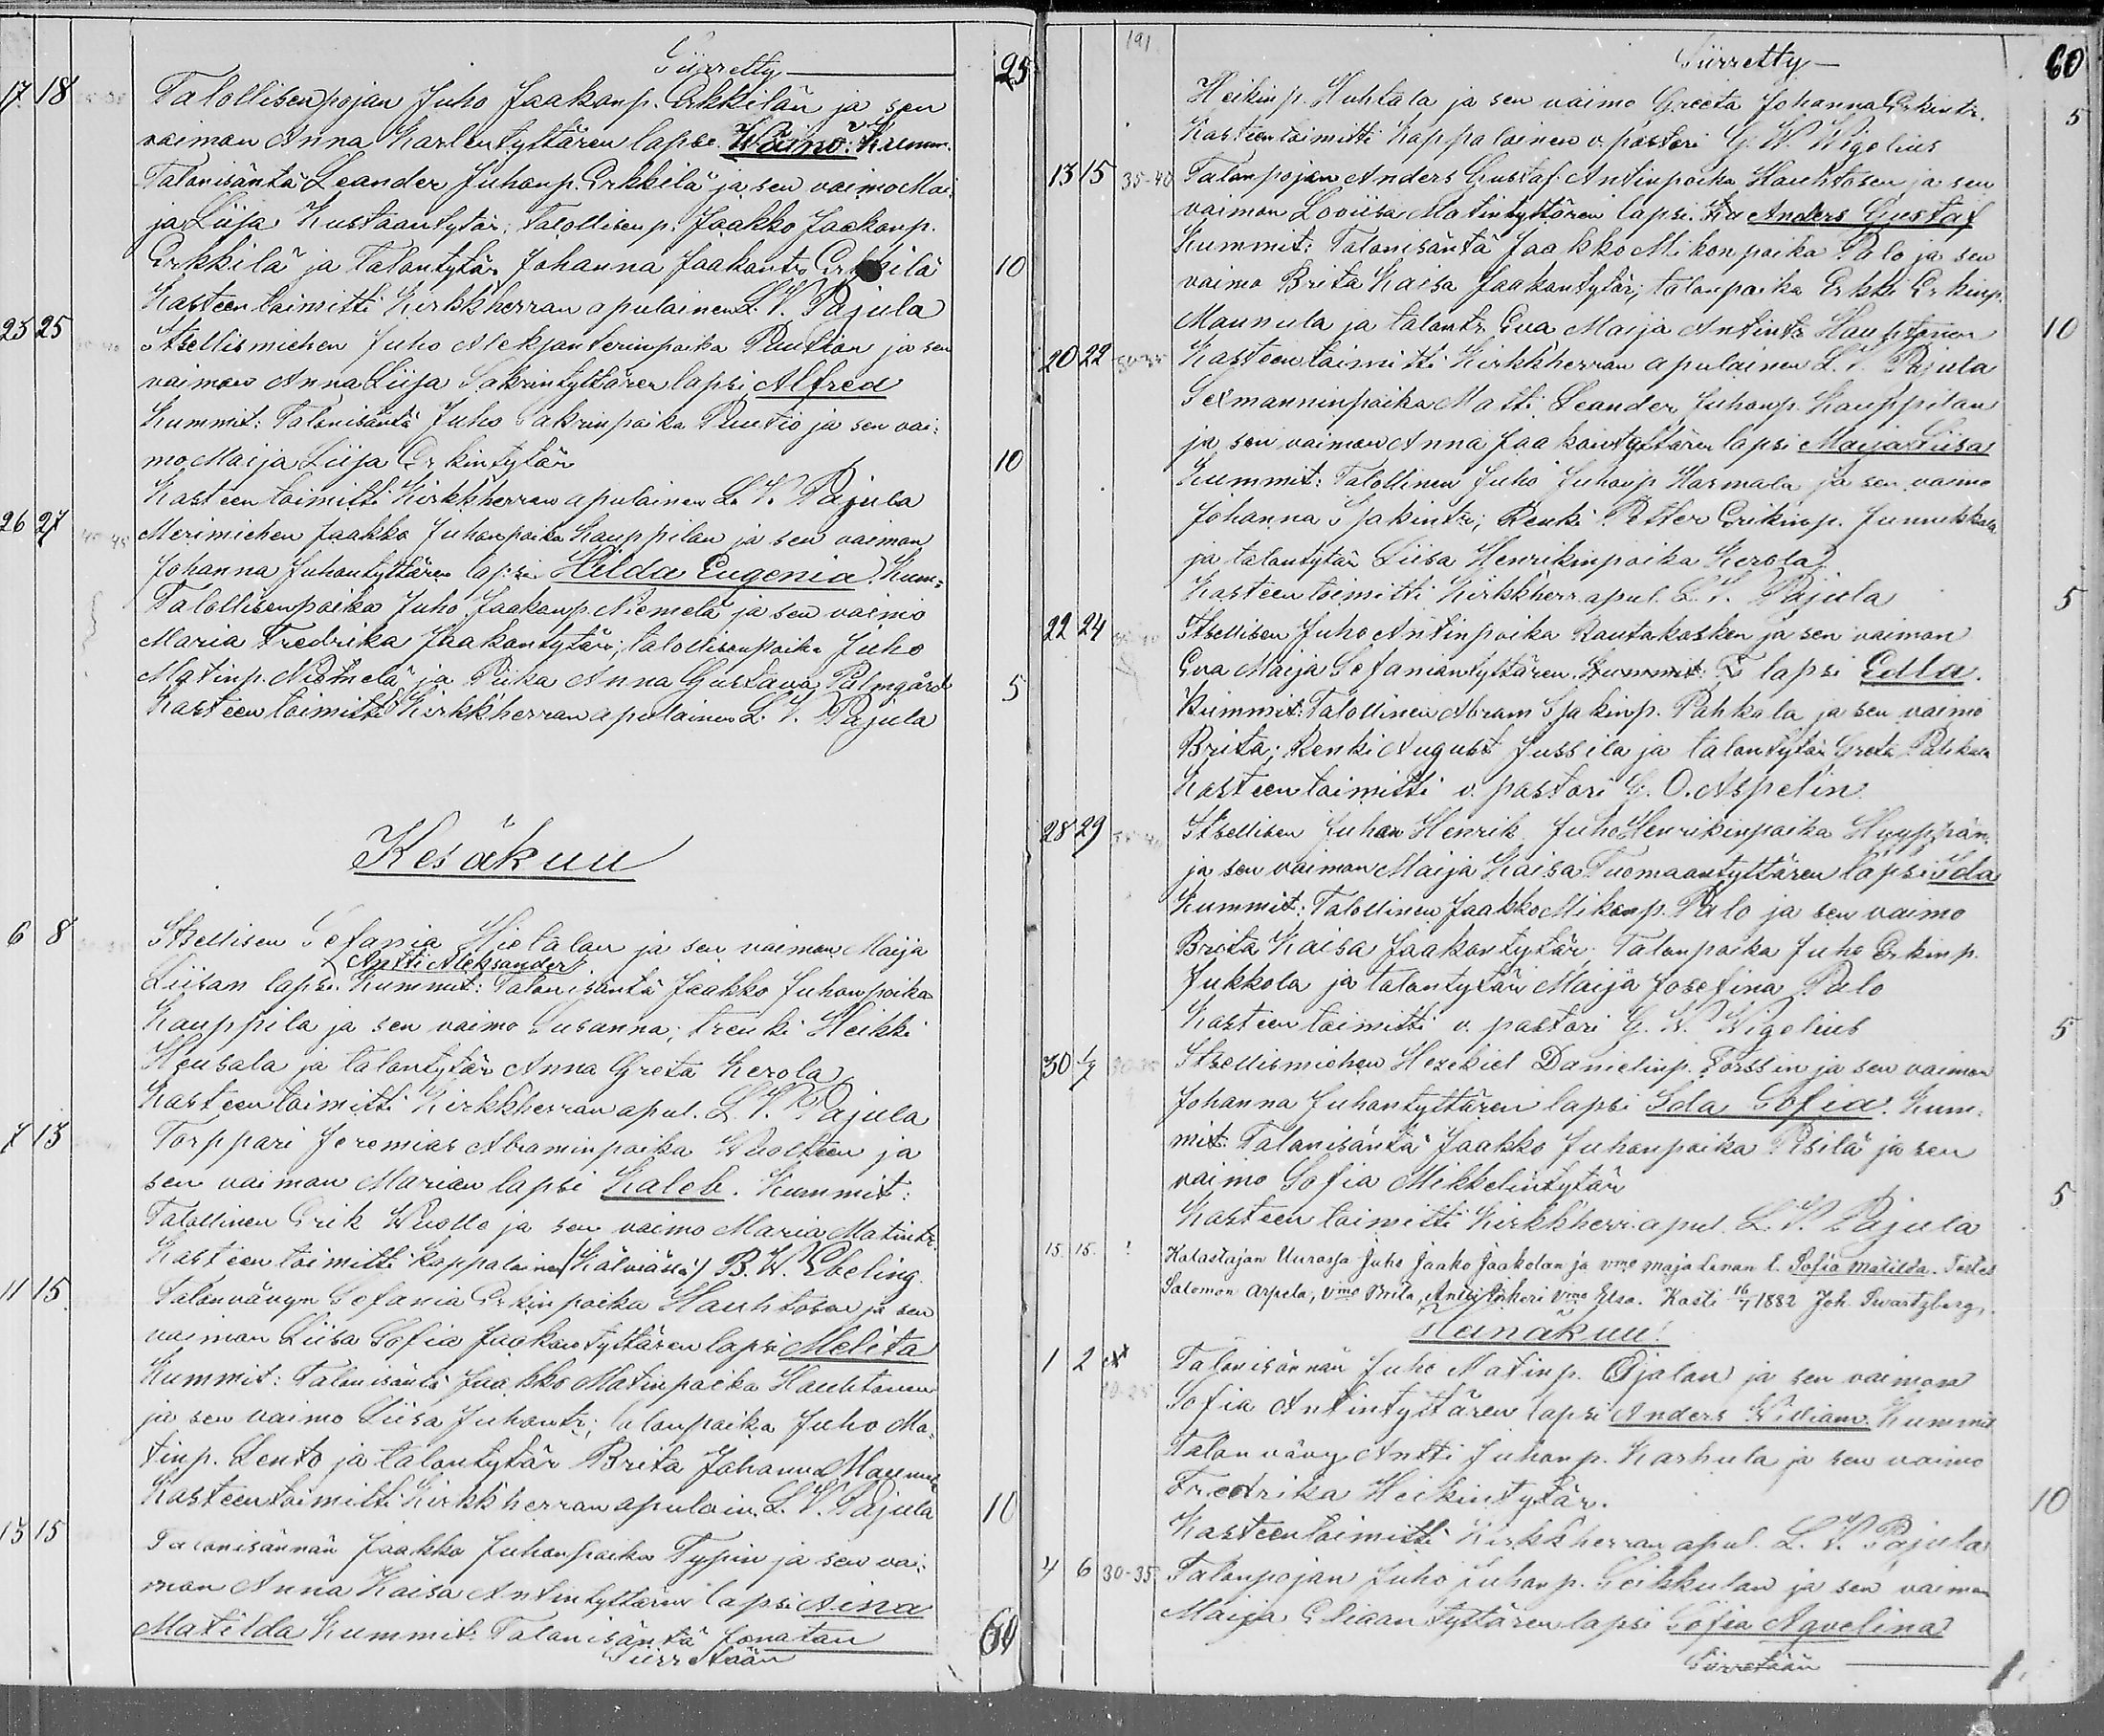 Siirretty 25
17 18 Talollisenpojan Juho Jaakonp. Erkkilän ja sen
vaimon Anna Karlentyttären lapsi Wäinö. Kumm.
Talonisäntä Leander Juhonp. Erkkilä ja sen vaimo Mai-
ja Liija Kustaantytär; Talollisenp. Jaakko Jaakonp.
Erkkilä ja Talontytär Johanna Jaakontr Erkkilä 10
Kasteen toimitti Kirkkherran apulainen L. V. Pajula
25 25 Itsellismiehen Juho Aleksanterinpoika Ruution ja sen
vaimon Anna Liija Sakrintyttären lapsi Alfred
Kummit: Talonisäntä Juho Sakrinpoika Ruutio ja sen vai-
mo Maija Liija Erkintytär 10
Kasteen toimitti Kirkkherran apulainen L. V. Pajula
26 27 40-45 Merimiehen Jaakko Juhonpoika Kauppilan ja sen vaimon
Johanna Juhontyttären lapsi Hilda Eugenia. Kum-
Talollisenpoika Juho Jaakonp. Niemelä ja sen vaimo
Maria Fredrika Jaakontytär; talollisenpoika Juho
Matinp. Niemelä ja Piika Anna Gustava Palmgård 5
Kasteen toimitti Kirkkherran apulainen L. V. Pajula
Kesäkuu
6 8 Itsellisen Sefania Hietalan ja sen vaimon Maija
Antti Aleksander
Liisan lapsi. Kummit: Talonisäntä Jaakko Juhonpoika
Kauppila ja sen vaimo Susanna; trenki Heikki
Heusala ja talontytär Anna Greta Kerola
Kasteen toimitti Kirkkherran apul. L. V. Pajula
7 13 Torppari Jeremias Abraminpoika Wuolteen ja
sen vaimon Marian lapsi Kaleb. Kummit:
Talollinen Erik Wuolle ja sen vaimo Maria Matintr.
Kasteen toimitti Kappalainen (Kälviässä) B. W. Ebeling.
11 15 Talonvävyn Sefania Erkinpoika Hauhtosen ja sen
vaiman Liisa Sofia Jaakontyttären lapsi Melita
Kummit: Talonisäntä Jaakko Matinpoika Hauhtonen
ja sen vaimo Liisa Juhontr; talonpoika Juho Ma-
tinp. Lento ja talontytär Brita Johanna Maunu
Kasteen toimitti Kirkkherran apulain. L. V. Pajula 10
13 15 Talonisännän Jaakko Juhonpoika Typin ja sen vai-
mon Anna Kaisa Antintyttären lapsi Aina
Matilda Kummit: Talonisäntä Jonatan 60
Siirretään
191 Siirretty 60
Heikinp. Huhtala ja sen vaimo Greeta Johanna Erkintr. 5
Kasteen toimitti Kappalainen v. pastori G. W. Wigelius
13 15 35-40 Talonpojan Anders Gustaf Antinpoika Hauhtosen ja sen
vaimon Loviisa Matintyttären lapsi Anders Gustaf
Kummit: Talonisäntä Jaakko Mikonpoika Palo ja sen
vaimo Brita Kaisa Jaakontytär; talonpoika Erkki Erkinp.
Maunula ja talontr. Eva Maija Antintr Hauhtonen 10
20 22 30-35 Kasteen toimitti Kirkkherran apulainen L. V. Pajula
Sexmanninpoika Matti Leander Juhonp. Kauppilan
ja sen vaimon Anna Jaakontyttären lapsi Maija Liisa
Kummit: Talollinen Juho Juhonp Harmala ja sen vaimo
Johanna Isakintr; Renki Petter Erikinp. Junnikkala
ja talontytär Liisa Henrikinpoika Kerola
Kasteen toimitti Kirkkherr. apul. L. V. Pajula 5
22 24 Itsellisen Juho Antinpoika Rautakosken ja sen vaiman
Eva Maija Sefaniantyttären. Kummit: T lapsi Edla.
Kummit: Talollinen Abram Isakinp. Pahkala ja sen vaimo
Brita; Renki August Jussila ja talontytär Greta Pahkala
Kasteen toimitti v. pastori G. O. Aspelin
28 29 Itsellisen Juhan Henrik Juho Henrikinpoika Hyyppän
ja sen vaiman Maija Kaisa Tuomaantyttären lapsi Ida
Kummit: Talollinen Jaakko Mikonp. Palo ja sen vaimo
Brita Kaisa Jaakontytär; Talonpoika Juho Erkinp.
Jukkola ja talontytär Maija Josefina Palo
Kasteen toimitti v. pastori G. W. Wigelius 5
30 1/7 Itsellismiehen Hezekiel Danielinp. Forssin ja sen vaimon
Johanna Juhontyttären lapsi Ida Sofia. Kum-
mit: Talonisäntä Jaakko Juhonpoika Pisilä ja sen
vaimo Sofia Mikkelintytär 5
Kasteen toimitti Kirkkherr. apul. L. V. Pajula
15. 15. ! Kalastajan Uurassa Juho Jaako Jaakolan ja vmo Maja Lenan l. Sofia Matilda. Testes
Salomon Arpela, vmo Brita, Antti Inkeri vmo Elsa. Kasti 16/7 1882 Joh. Swartzberg.
Heinäkuu.
1 2 Talonisännän Juho Matinp. Ojalan ja sen vaimon
Sofia Antintyttären lapsi Anders William. Kummit
Talon vävy Antti Juhonp. Karhula ja sen vaimo
Fredrika Heikintytär. 10
Kasteen toimitti Kirkkherran apul. L. V. Pajula
4 6 30-35 Talonpojan Juho Juhonp. Seikkulan ja sen vaimon
Maija Eliaantyttären lapsi Sofia Aqvelina
Siirretään